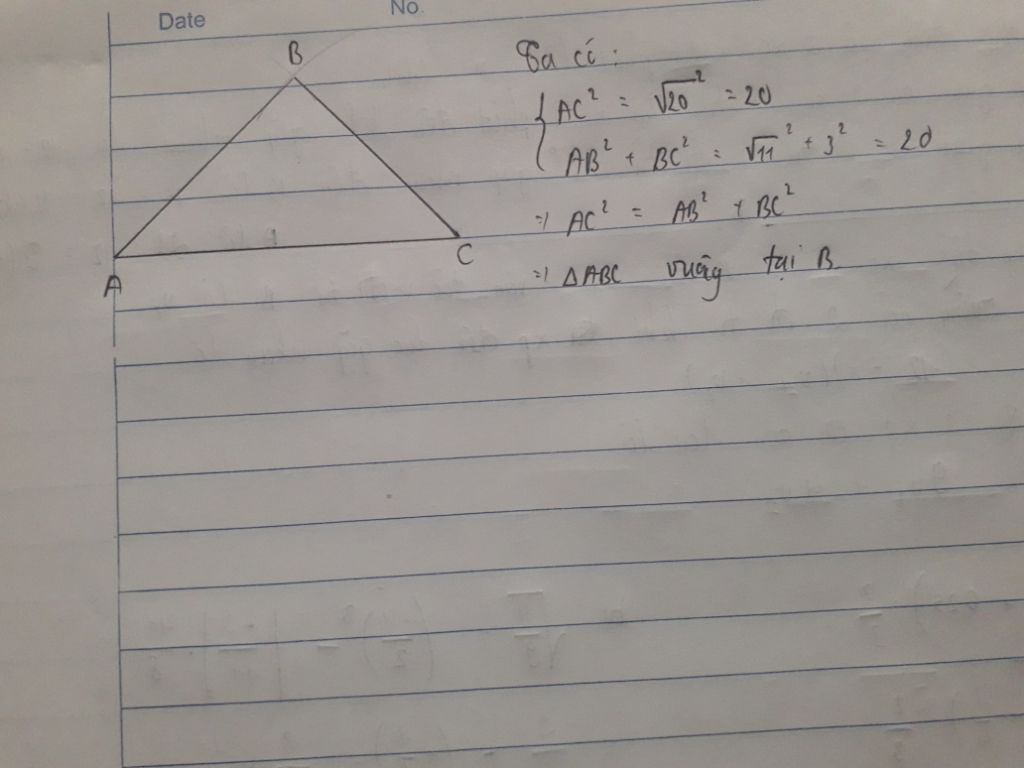 Date
No.
B
A
C
Ta có:
{ AC² = √20² = 20
AB² + BC² = √11² + 3² = 20
=> AC² = AB² + BC²
=> △ABC vuông tại B